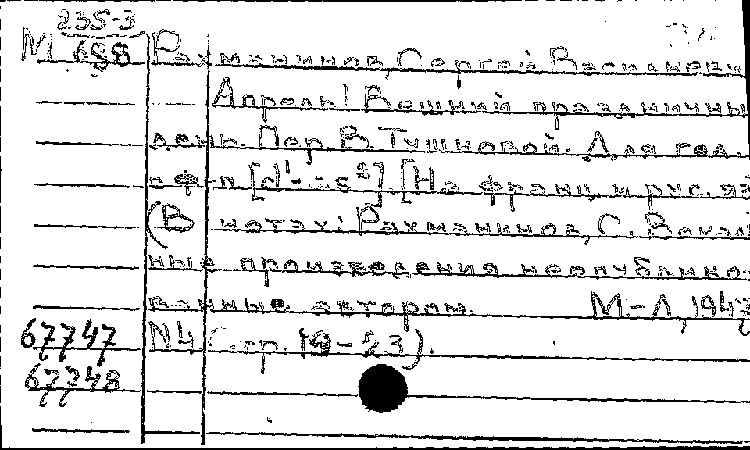 235-3
М 688 Рахманинов, Сергей Васильеви
Апрель! Вешний праздничны
день. Пер. В. Тушновой. Для гол.
с ф-п [d¹- ]. [На франц. и рус. яз
(В нотах: Рахманинов, С. Вокал
ные произведения неопублико-
ванные автором. М-Л, 1947
67747 N4 Стр. 19-23).
67748